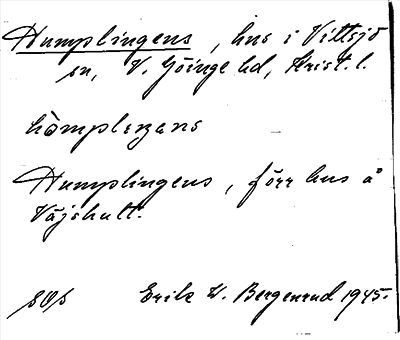 Humplingens, hus i Vittsjö
sn, V. Göinge hd, Krist. l.
hòmpleŋens
Humplingens, förr hus å
Väjshult.
sOs Erik W. Bergenrud 1945.